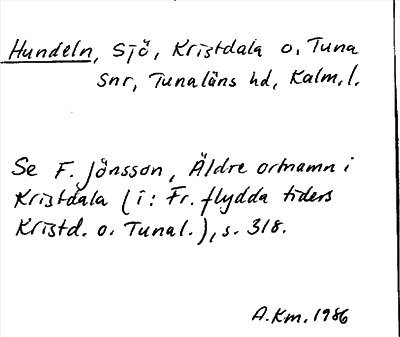 Hundeln, Sjö, Kristdala o. Tuna
snr, Tunaläns hd, Kalm. l.
Se F. Jönsson, Äldre ortnamn i
Kristdala (i: Fr. flydda tiders
Kristd. o. Tunal.), s. 318.
A.Km. 1986